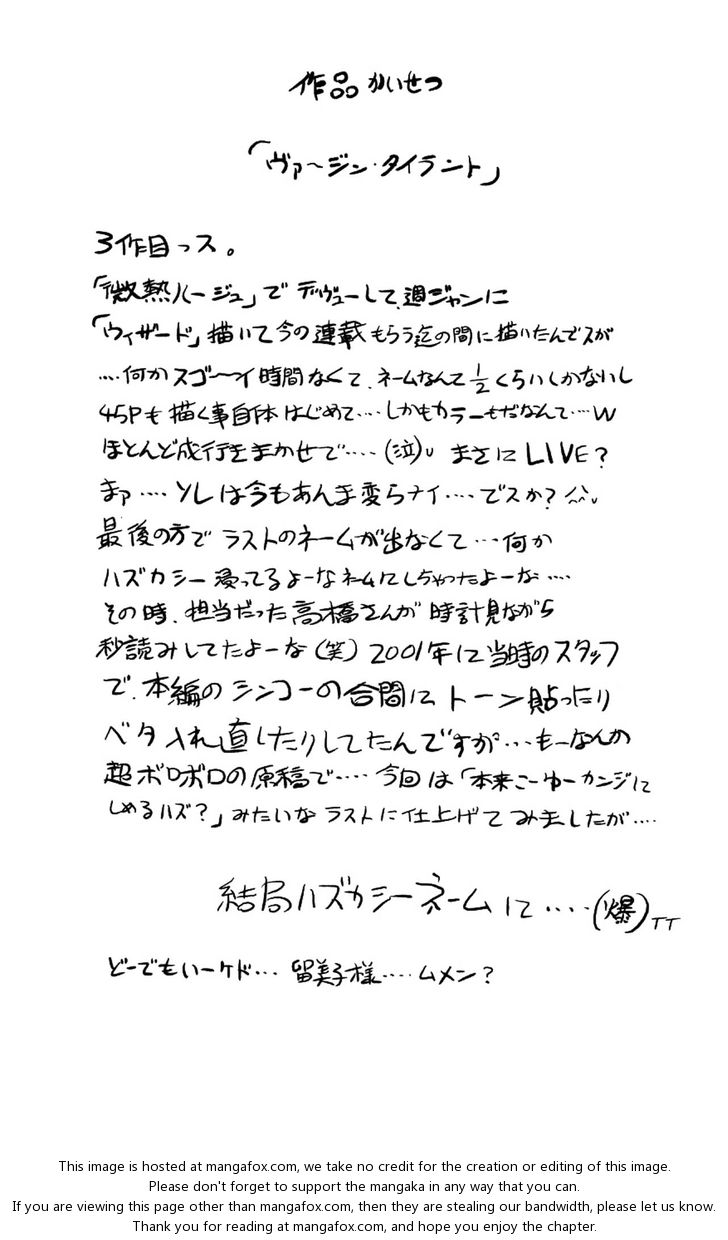 作品かいせつ
「ヴァ〜ジン・タイラント」
3作目っス。
「微熱ルージュ」でデヴューして、週ジャンに
「ウィザード」描いて今の連載もらう迄の間に描いたんでスが
....何かスゴ〜イ時間なくて、ネームなんて1/2くらいしかないし
45Pも描く事自体はじめて....しかもカラーもだなんて...w
ほとんど成行きまかせで....(泣)。まさにLIVE?
まァ....ソレは今もあんま変らナイ....でスか?^^;
最後の方でラストのネームが出なくて...何か
ハズカシー浸ってるよーなネームにしちゃったよーな....
その時、担当だった高橋さんが時計見ながら
秒読みしてたよーな(笑)2001年に当時のスタッフ
で、本編のシンコーの合間にトーン貼ったり
ベタ入れ直したりしてたんですが...もーなんか
超ボロボロの原稿で....今回は「本来こーゆーカンジに
しめるハズ?」みたいなラストに仕上げてみましたが....
結局ハズカシーネームに....(爆)TT
どーでもいーケド...留美子様....ムメン?
This image is hosted at mangafox.com, we take no credit for the creation or editing of this image.
Please don't forget to support the mangaka in any way that you can.
If you are viewing this page other than mangafox.com, then they are stealing our bandwidth, please let us know.
Thank you for reading at mangafox.com, and hope you enjoy the chapter.